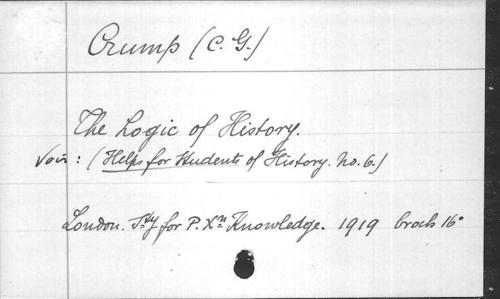 Crump (C. G.)
The Logic of History.
Voir : (Helps for Students of History. No. 6.)
London. Sty for P. Xn Knowledge. 1919 broch 16°